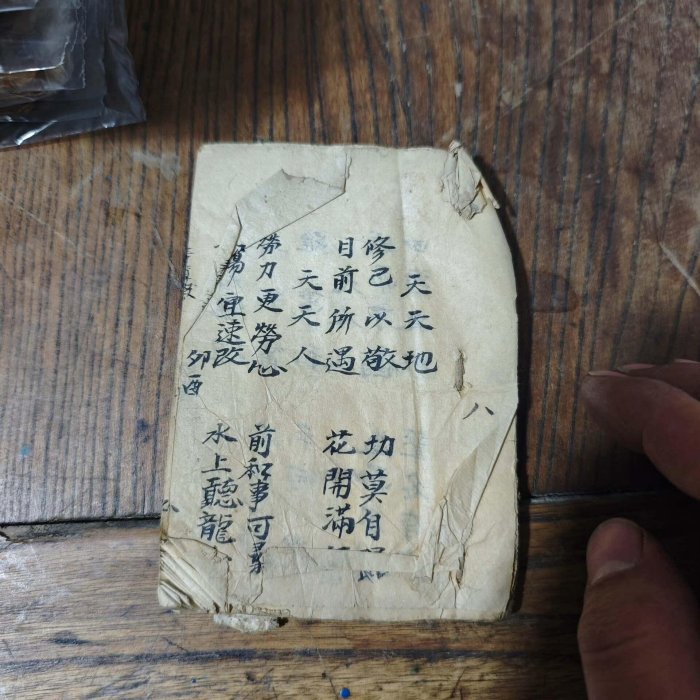 天天地
八
修己以敬
功莫自
目前所遇
花開滿
天天人
勞力更勞心
前和事可尋
宜速改
水上聽龍
卯酉